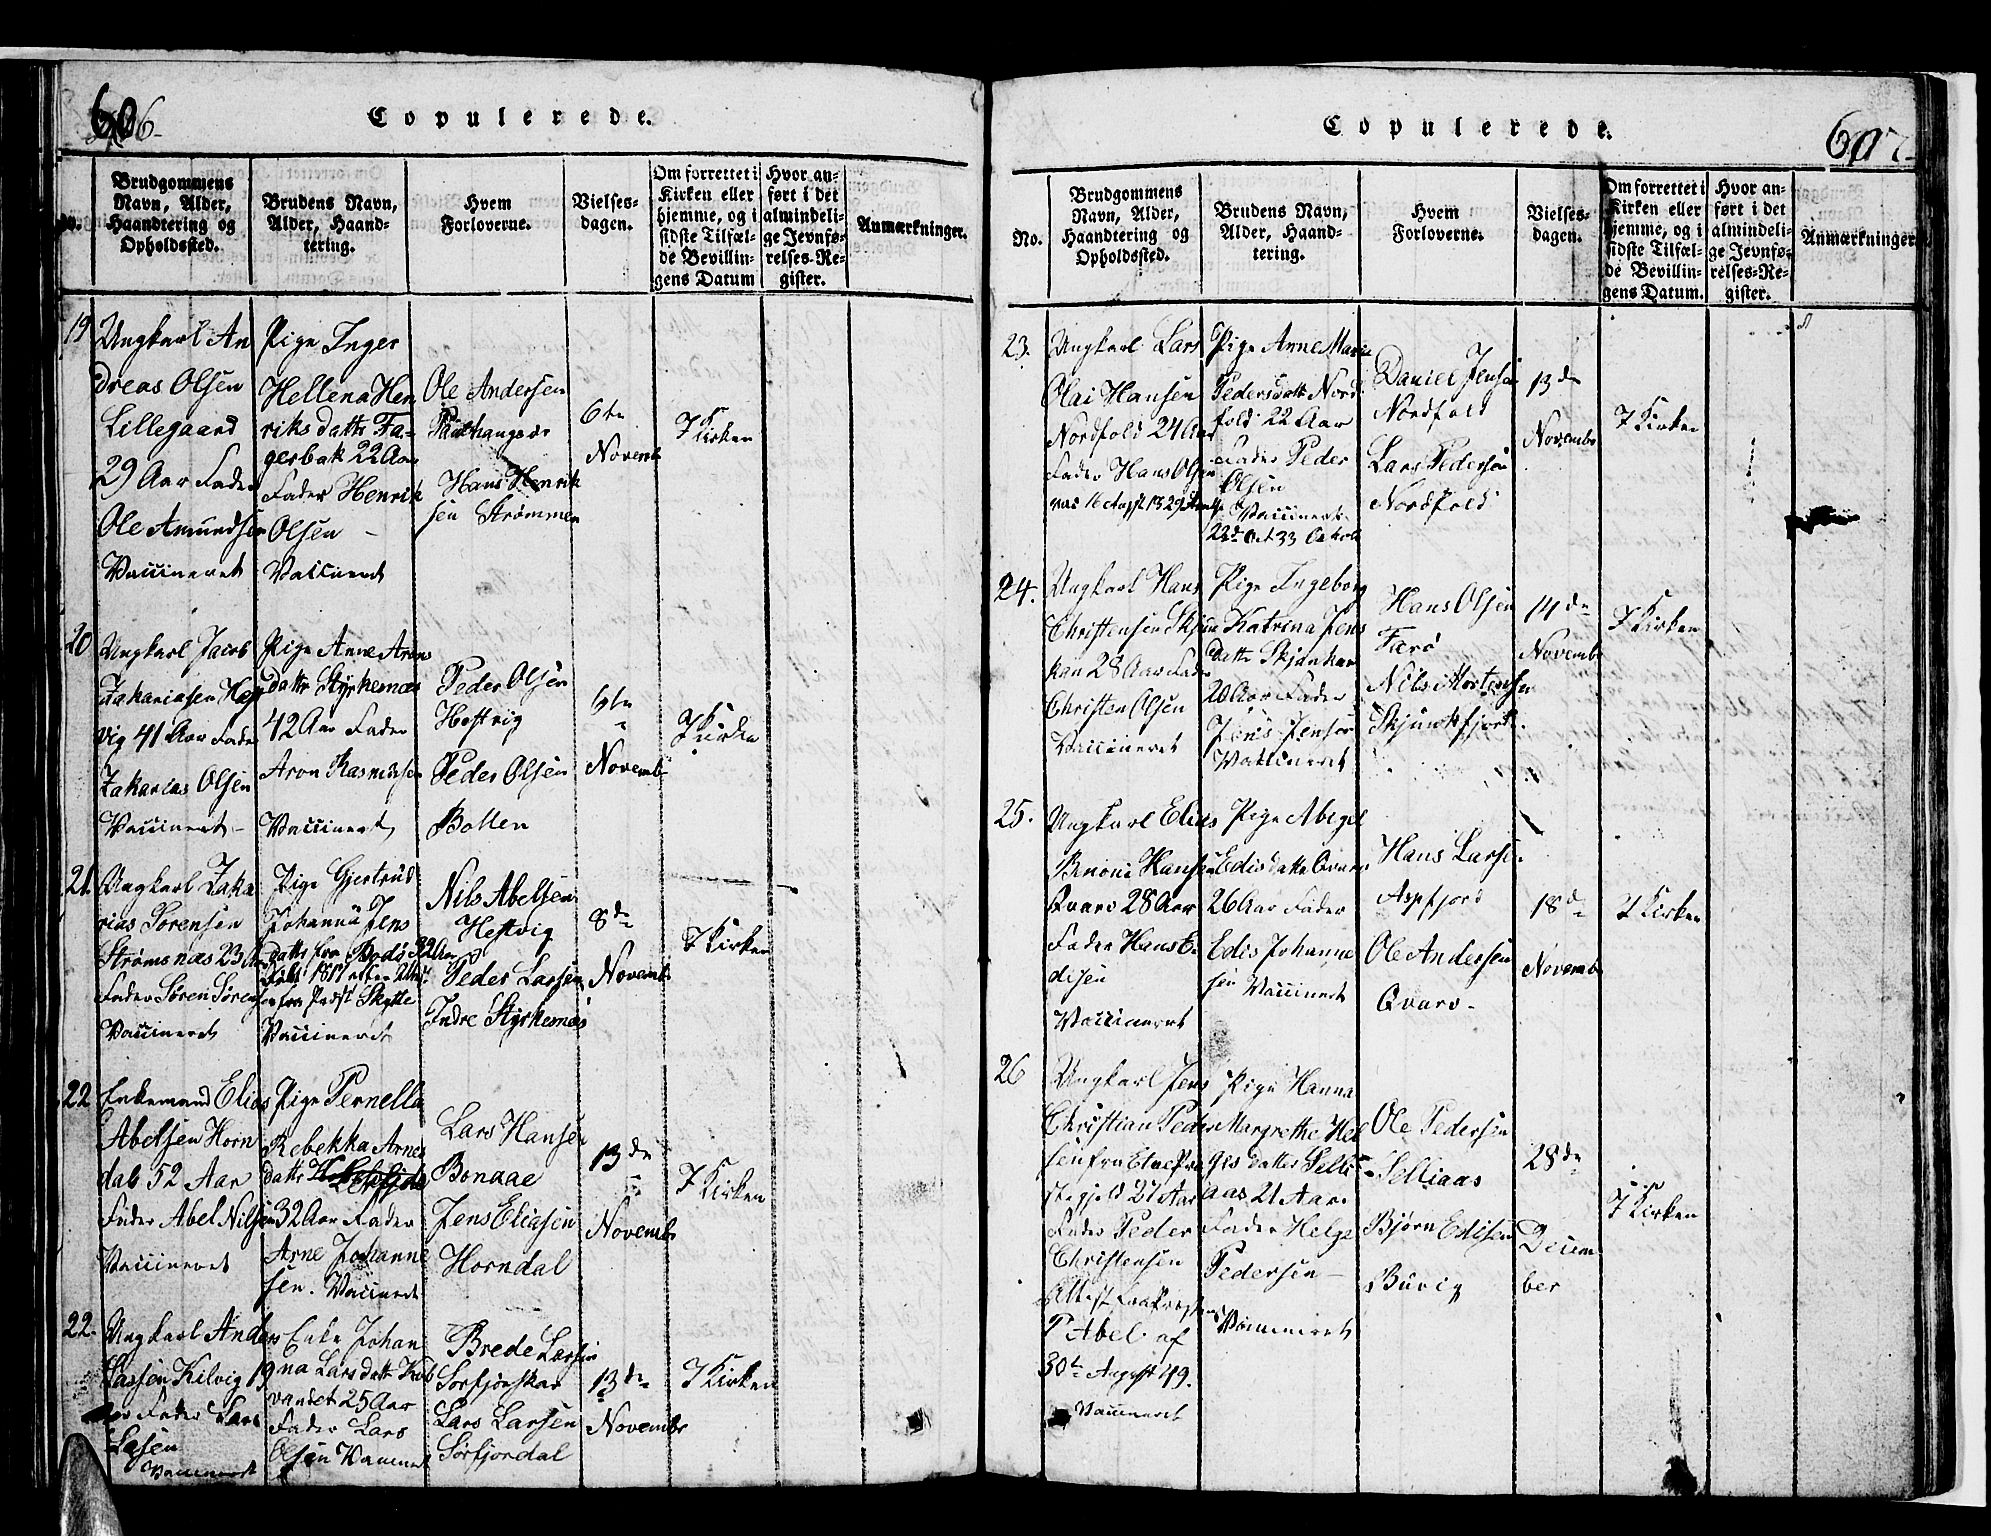 606
Copulerede.
No.
Brudgommens Navn, Alder, Haandtering og Opholdssted.
Brudens Navn, Alder, Haandtering.
Hvem Forloverne.
Vielses-dagen.
Om forrettet i Kirken eller hjemme, og i sidste Tilfælde Bevillingens Datum
Hvor anført i det almindelige Jevnførelses-Register.
Anmærkninger.
19
Ungkarl An
dreas Olsen
Lillegaard
29 Aar Fader
Ole Amundsen
Vaccineret
Pige Inger
Hellena Hen
riks datter Fa-
gerbak 22 Aar
Fader Henrik
Olsen -
Vaccineret
Ole Andersen
Hans Henrik
sen Strømmen
6te
Novemb
I Kirken
20
Ungkarl Jacob
Zakariasen Hest
vig 41 Aar Fader
Zakarias Olsen
Vaccineret -
Pige Anne Arons
datter Styrkesnæs
42 Aar Fader
Aron Rasmusen
Vaccineret
Peder Olsen
Hestvig
Peder Olsen
Botten
6te
Novemb
I Kirken
21.
Ungkarl Zaka
rias Sørensen
Strømsnæs 23 Aar
Fader Søren Sørensen
Vaccineret
Pige Gjertrud
Johanna Jens
datter fra Bodø 32 Aar
fra Præst Skytte
Vaccineret
Nils Abelsen
Hestvig
Peder Larsen
Indre Styrkesnæs
8de
Novemb
I Kirken
22
Enkemand Elias
Abelsen Horn
dal 52 Aar
Fader Abel Nilsen
Vaccineret
Pige Pernella
Rebekka Arnes
datter
32 Aar Fader
Arne Johanne
sen. Vaccineret
Lars Hansen
Bonaae
Jens Eliasen
Horndal
13de
Novembr
I Kirken
22.
Ungkarl Anders
Larsen Kilvig 19
Aar Fader Lars
Larsen
Vaccineret
Enke Johan
na Lars datt Kob
vandet 25 Aar
Fader Lars
Olsen Vaccineret
Brede Larsen
Sørfjordal
Lars Larsen
13de
Novembr
I Kirken
607
Copulerede.
No.
Brudgommens Navn, Alder, Haandtering og Opholdssted.
Brudens Navn, Alder, Haandtering.
Hvem Forloverne.
Vielses-dagen.
Om forrettet i Kirken eller hjemme, og i sidste Tilfælde Bevillingens Datum.
Hvor anført i det almindelige Jevnførelses-Register.
Anmærkninger
23.
Ungkarl Lars
Olai Hansen
Nordfold 24 Aar
Fader Hans Olsen
vac 16 Augst 1829
Pige Anne Marie
Pedersdatt Nord
fold 22 Aar
Fader Peder
Olsen
Vaccineret
22de Oct 33
Daniel Jensen
Nordfold
Lars Pedersen
Nordfold
13de
Novembr
I Kirken
24.
Ungkarl Hans
Christensen
28 Aar Fader
Christen Olsen
Vaccineret
Pige Ingeborg
Katrina Jens
datter
20 Aar Fader
Jens Jensen
Vaccineret
Hans Olsen
Færø
Nils Mortensen
14de
Novembr
I Kirken
25.
Ungkarl Elias
Benoni Hansen
Qvarv 28 Aar
Fader Hans E-
disen
Vaccineret
Pige Abegel
Edisdatter Qvarv
26 Aar Fader
Edis Johanne
sen Vaccineret
Hans Larsen
Aspfjord
Ole Andersen
Qvarv -
18de
Novembr
I Kirken
26
Ungkarl Jens
Christian Peder
sen fra Etne Præ
stegjeld 27 Aar
Fader Peder
Christensen
Attest fra Præsten
P Abel af
30te August 49.
Vaccineret
Pige Hanna
Margrethe Hel
ges datter Selli
aas 21 Aar.
Fader Helge
Pedersen -
Vaccineret
Ole Pedersen
Selliaas
Bjørn Edisen
Buvig
28de
Decem
ber
I Kirken